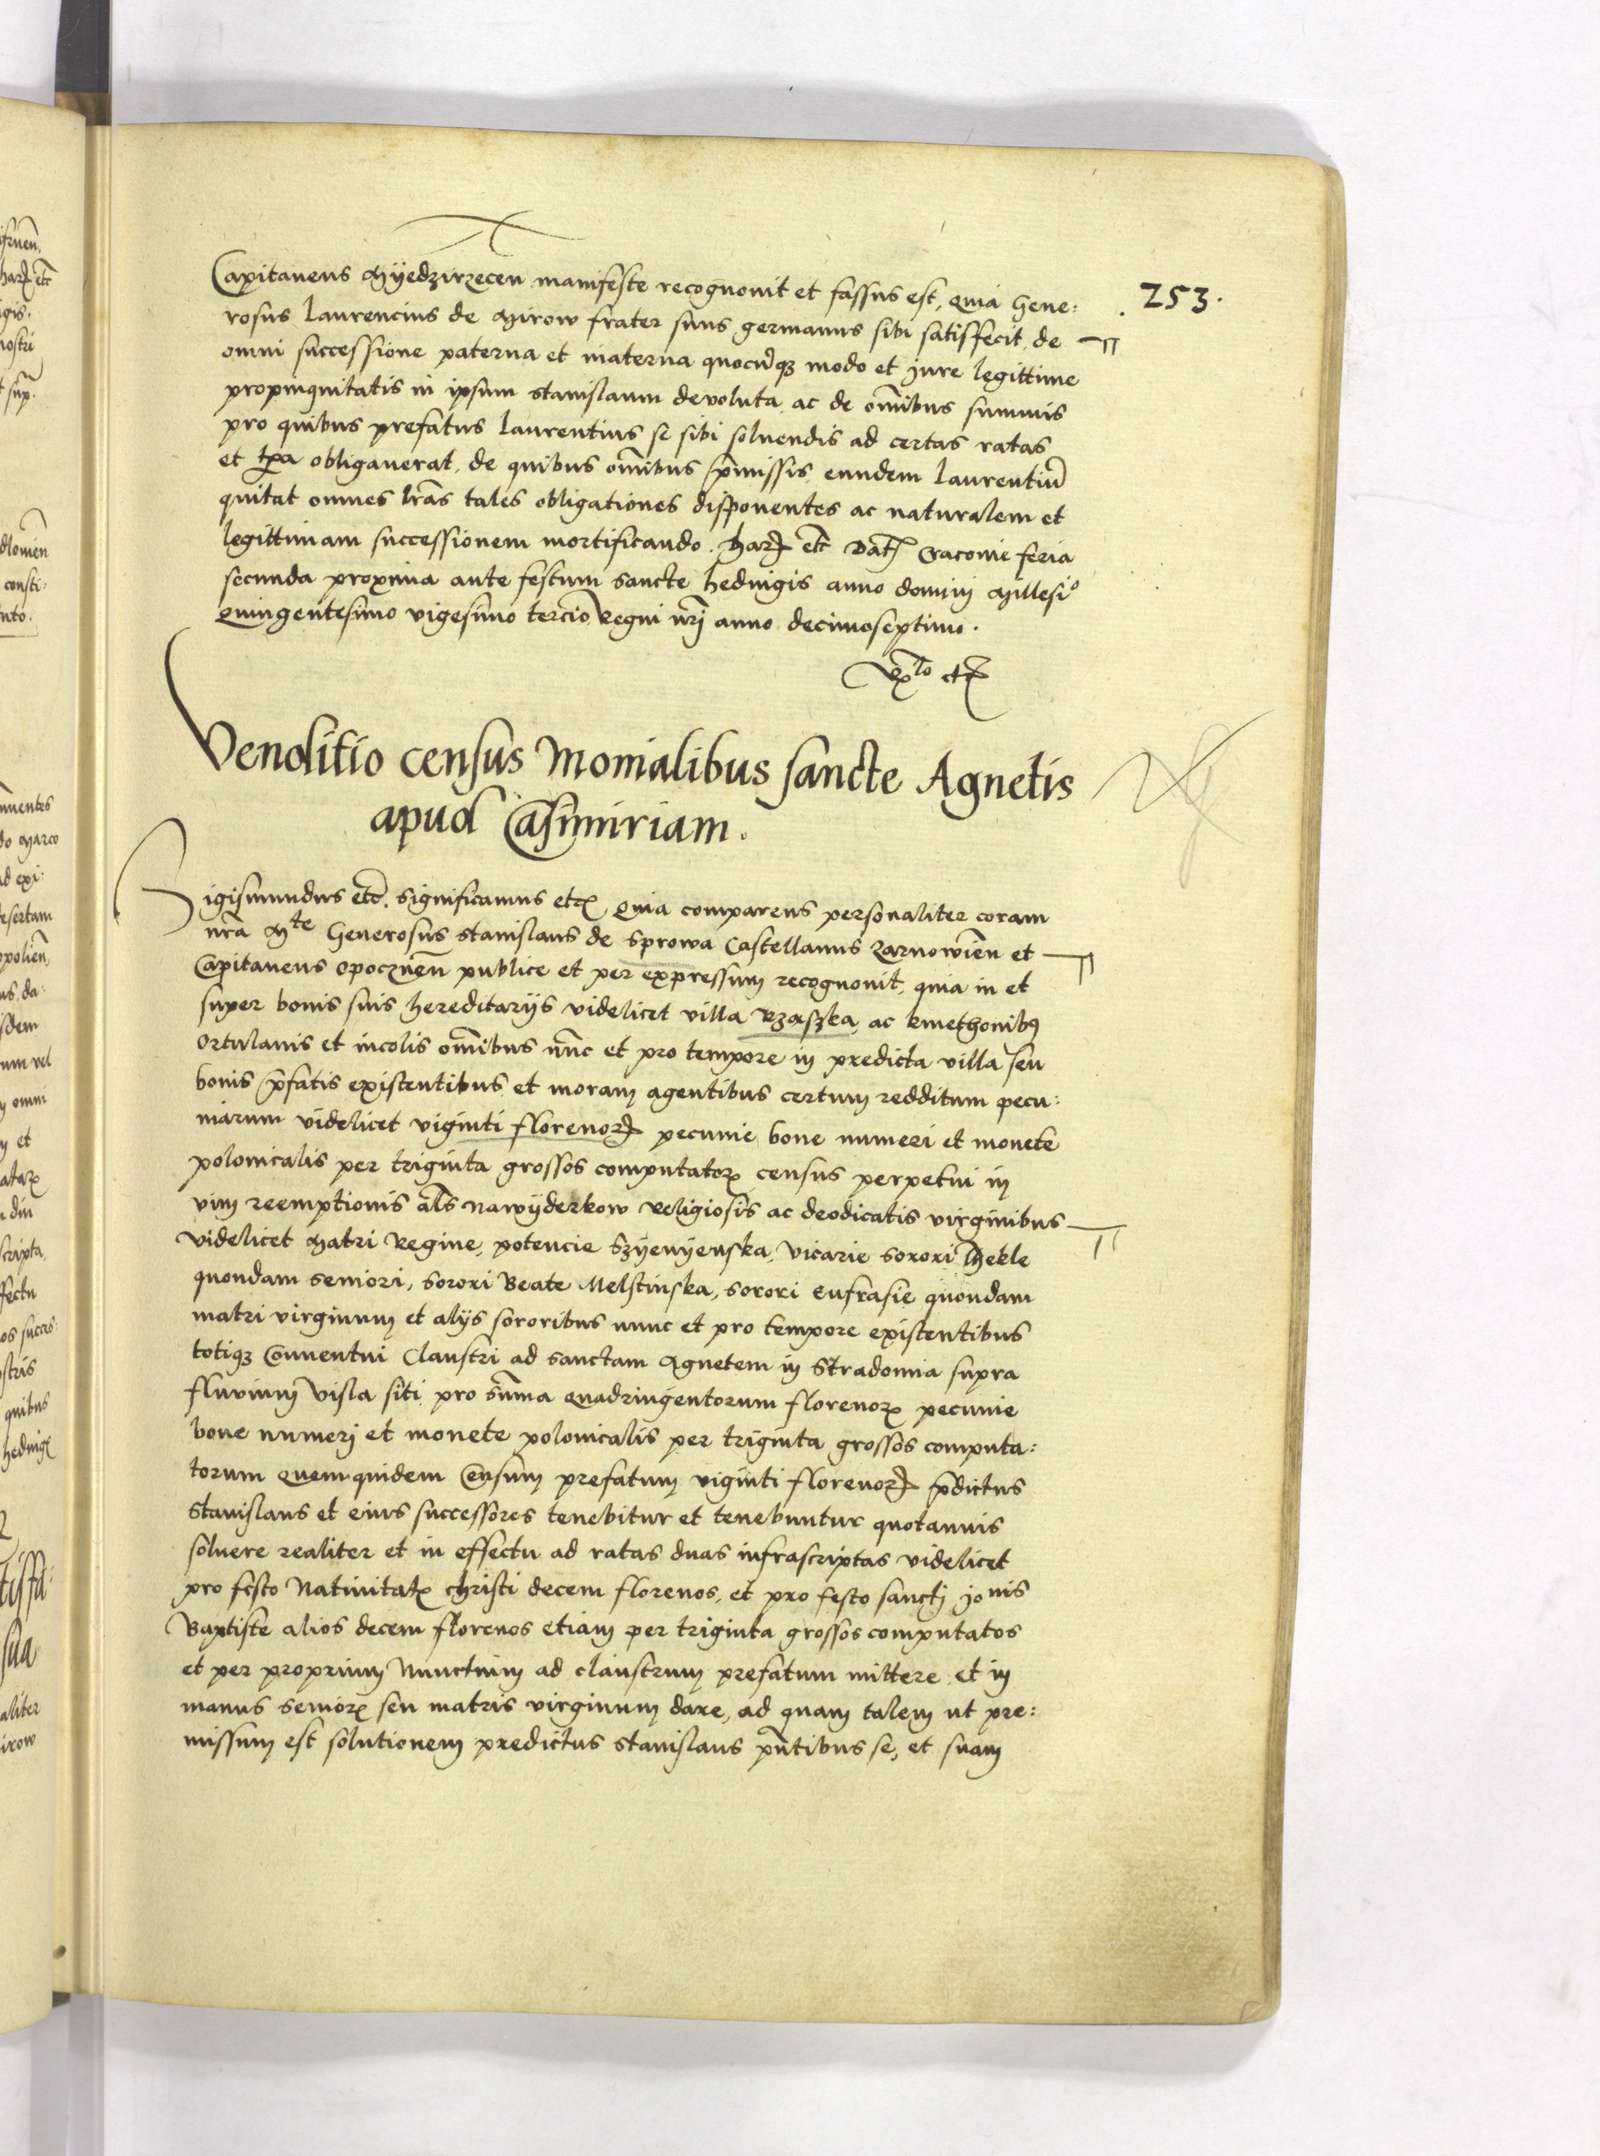 253.
Capitaneus Myedzirzecen manifeste recognovit et fassus est, quia Gene:
rosus Laurencius de Mirow frater suus germanus sibi satisfecit, de
omni successione paterna et materna quocu̅q3 modo et jure legittime
propinquitatis in ipsum Stanislaum devoluta, ac de om̅ibus summis
pro quibus prefatus Laurentius se sibi solvendis ad certas ratas
et tp̅a obligaverat, de quibus om̅ibus p̅missis eundem Laurentiu̅
quitat omnes lr̅as tales obligationes disponentes ac naturalem et
legittimam successionem mortificando. Har̅ etc̅ Dat̅ Cracovie feria
secunda proxima ante festum sancte Hedvigis anno domini Millesi°
Quingentesimo vigesimo tercio Regni nr̅j anno decimoseptimo.
Venditio census Monialibus sancte Agnetis
apud Casimiriam.
Sigismundus etc̅. significamus etc̅ Quia comparens personaliter coram
nr̅a Mte Generosus Stanislaus de Sprowa Castellanus Zarnowien̅ et
Capitaneus Opocznen̅ publice et per expressum recognovit, quia in et
super bonis suis hereditarijs videlicet villa Rzaszka, ac kmethonib9
Ortulanis et incolis om̅ibus nu̅nc et pro tempore in predicta villa seu
bonis p̅fatis existentibus et moram agentibus certum redditum pecu:
niarum videlicet viginti floreno℞ pecunie bone numeri et monete
polonicalis per triginta grossos computato℞ census perpetui in
vim reemptionis al̅s nawyderkow Religiosis ac deodicatis virginibus
videlicet Matri Regine, potencie Szyenyenska, vicarie sorori Thekle
quondam seniori, sorori Beate Melstinska, sorori Eufrasie quondam
matri virginum et alijs sororibus nunc et pro tempore existentibus
totiq3 Conventui Claustri ad sanctam Agnetem in Stradomia supra
fluvium Visla siti pro su̅ma Quadringentorum floreno℞ pecunie
bone numerj et monete polonicalis per triginta grossos computa:
torum Quemquidem Censum prefatum viginti floreno℞ p̅dictus
Stanislaus et eius successores tenebitur et tenebuntur quotannis
solvere realiter et in effectu ad ratas duas infrascriptas videlicet
pro festo Nativitat℞ christi decem florenos, et pro festo sanctj Jonis
Baptiste alios decem florenos etiam per triginta grossos computatos
et per proprium Nunctium ad claustrum prefatum mittere et in
manus senior℞ seu matris virginum dare, ad quam talem ut pre:
missum est solutionem predictus Stanislaus pn̅tibus se, et suam